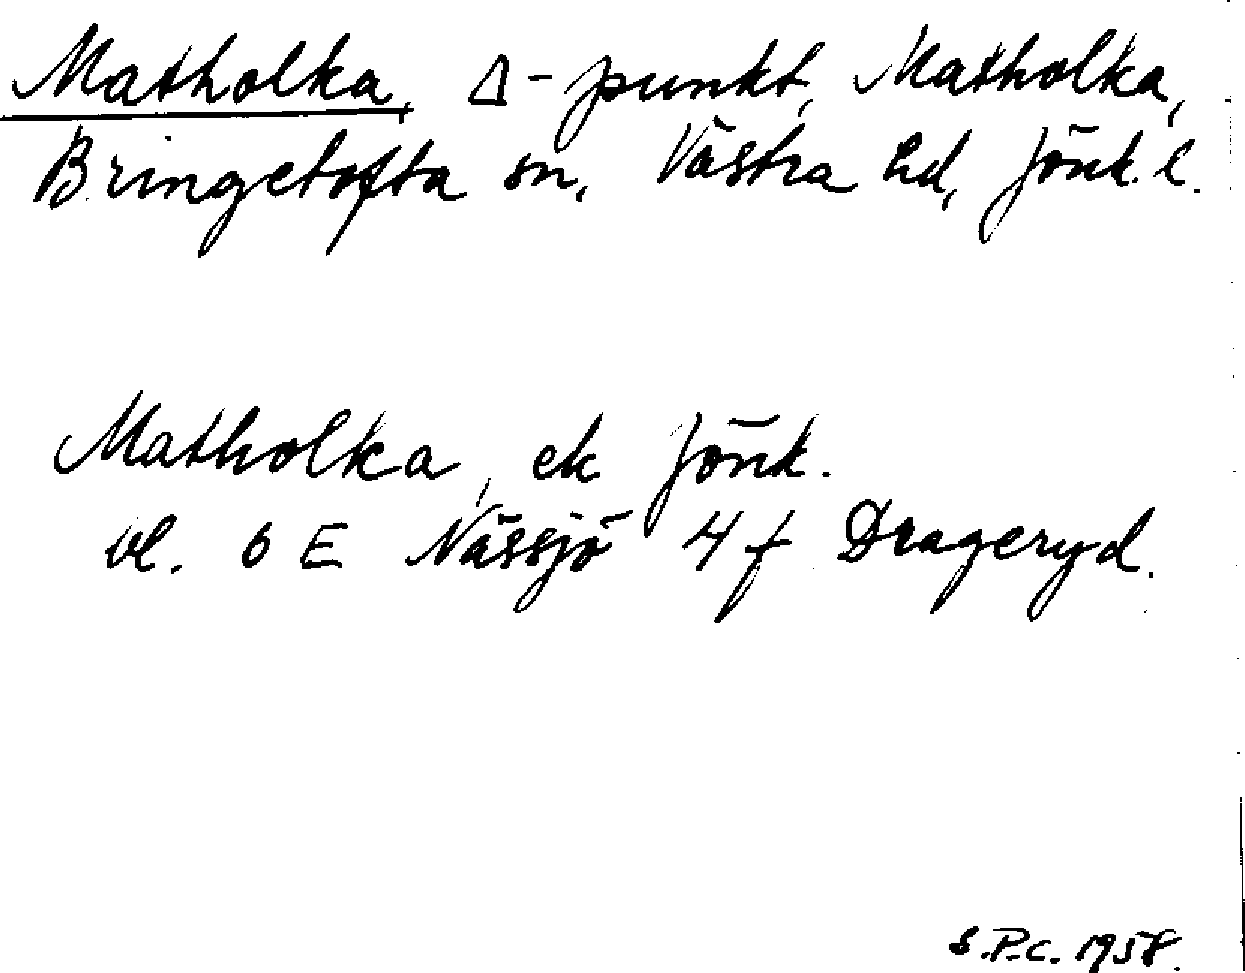 Matholka, Δ-punkt, Matholka,
Bringetofta sn, Västra hd, Jönk. l.
Matholka, ek Jönk.
bl. 6 E Nässjö 4 f Drageryd.
S.P.C. 1958.